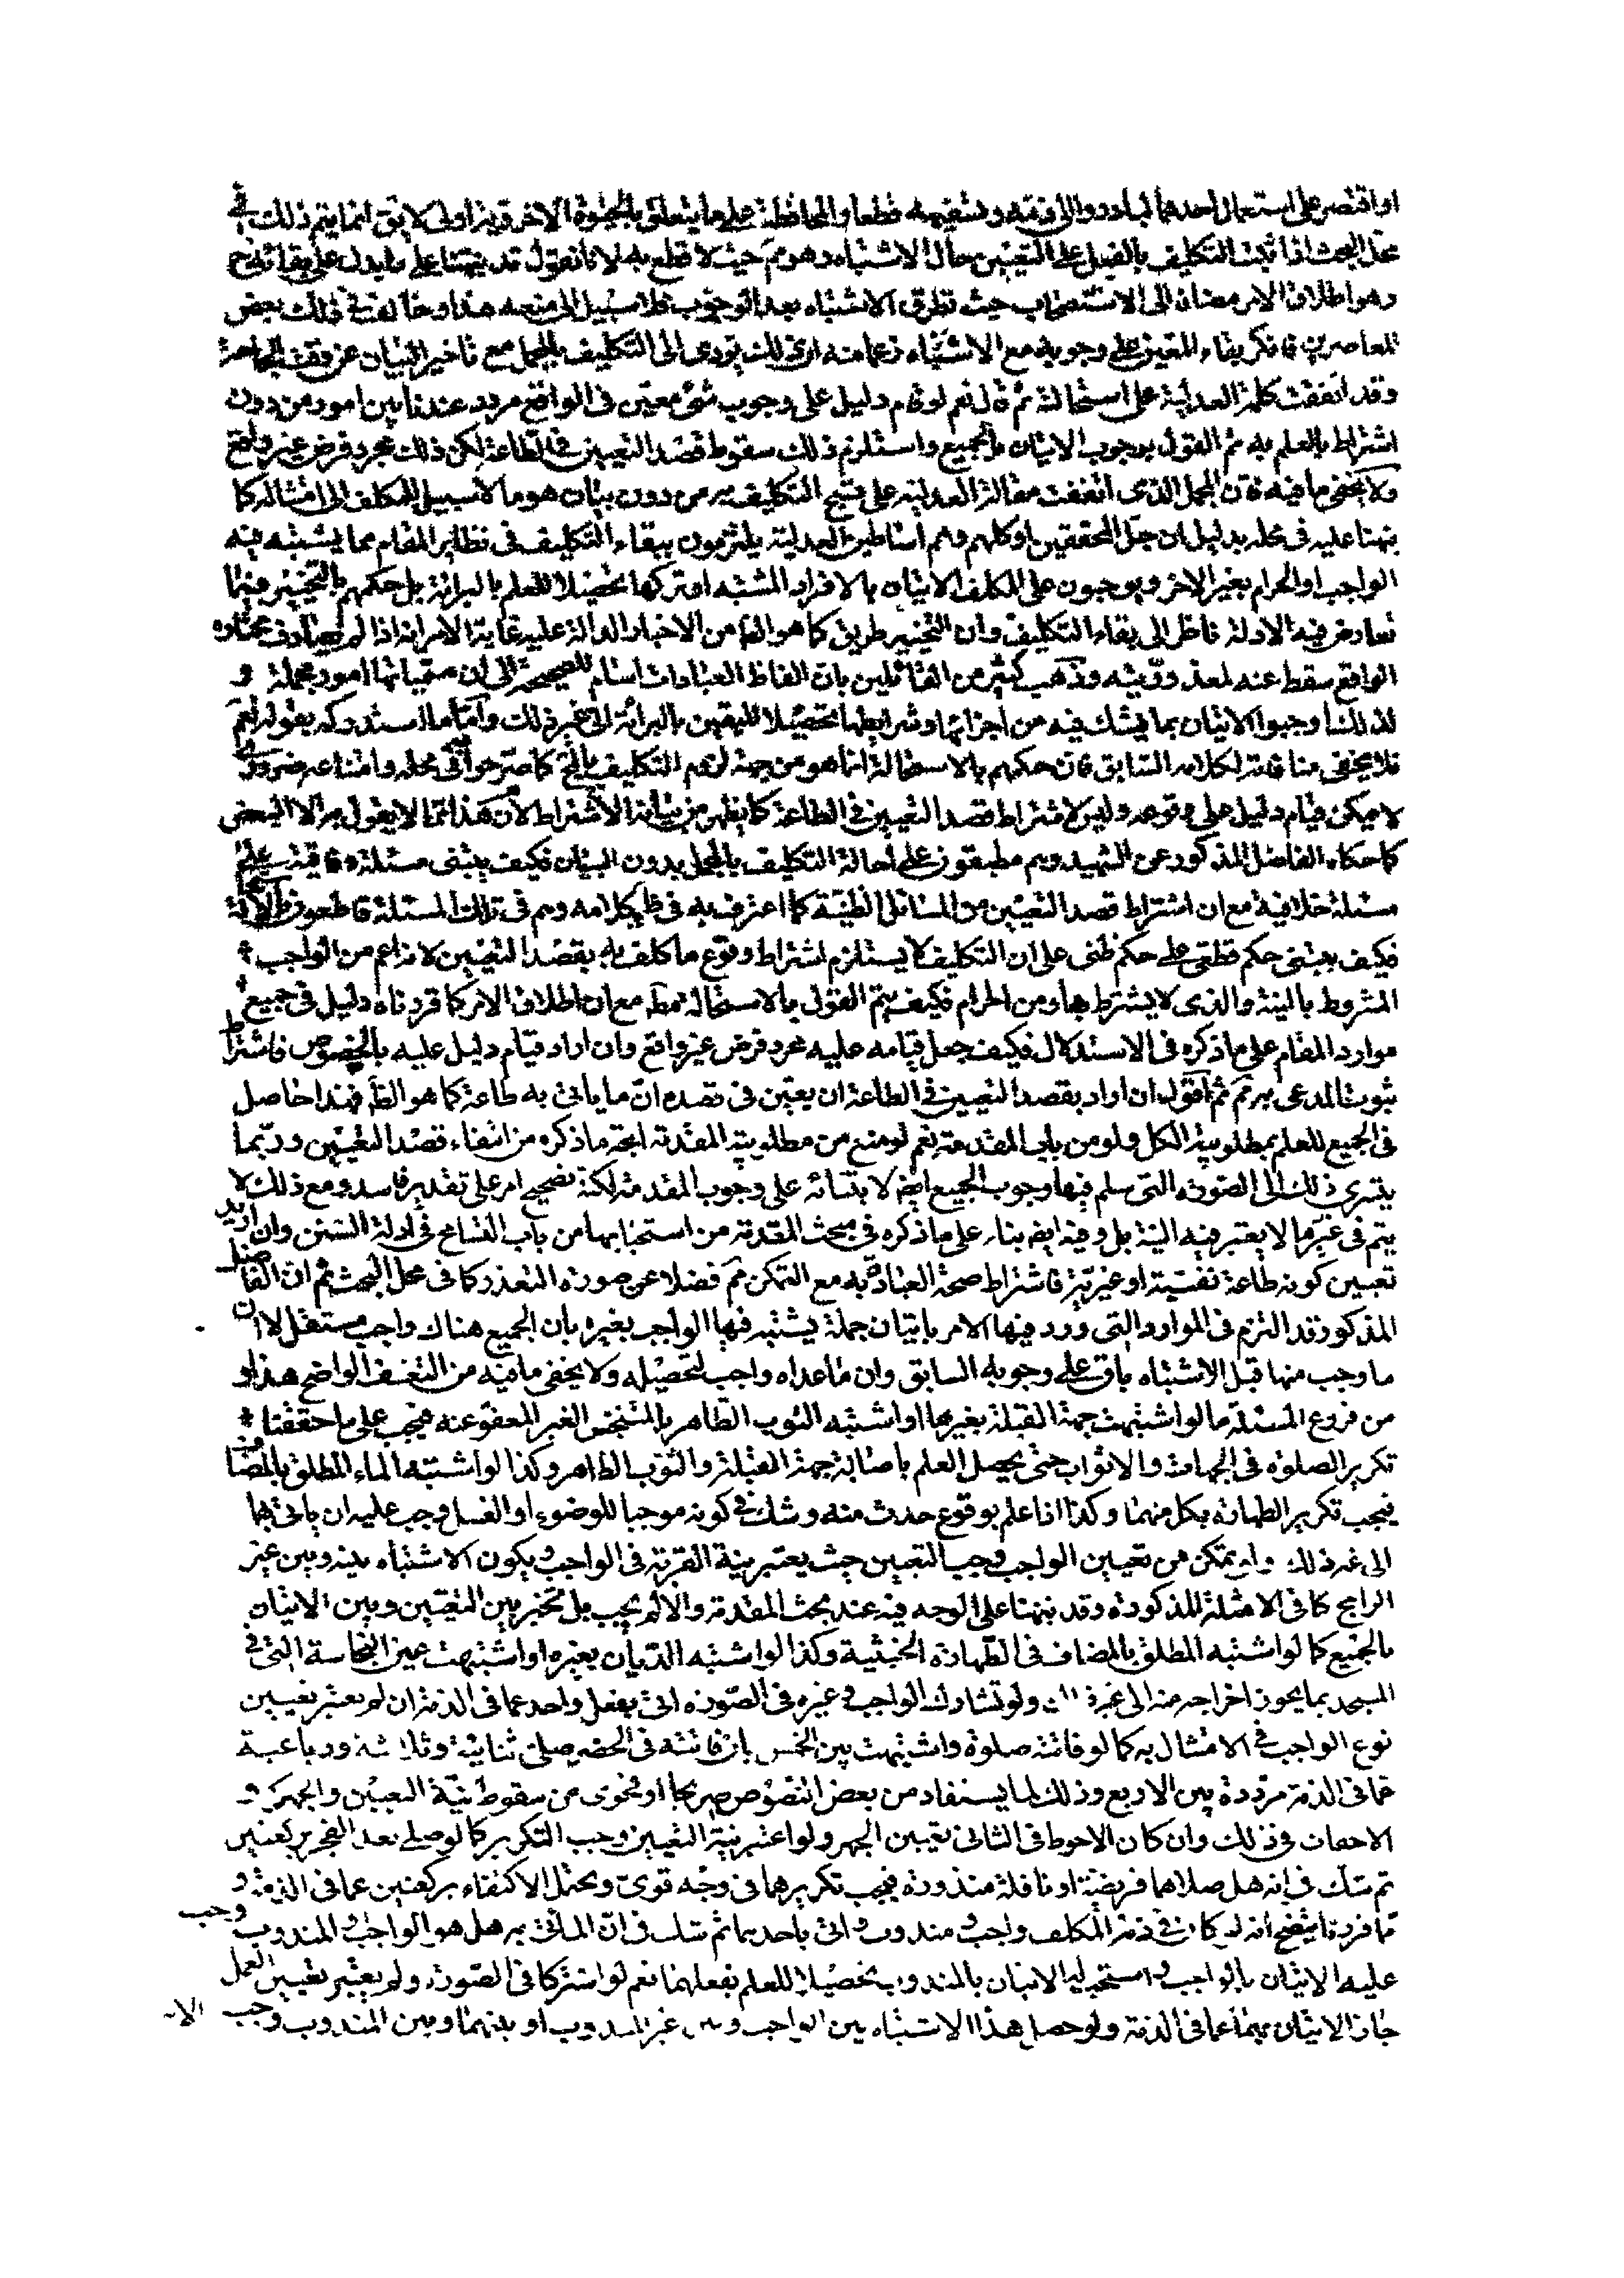 او اقتصر على استعمال احدهما لبادروا الى ذمه وتسفيهه قطعا والمحافظة على ما يتعلق بالحيوة الاخروية اولى لا يق انما يتم ذلك في
محل البحث اذا ثبت التكليف بالفعل على التعيين حال الاشتباه وهو مم حيث لا قطع به لانا نقول قد نبهنا على ما يدل على بقائه ح
وهو اطلاق الامر مضافا الى الاستصحاب حيث تطرق الاشتباه بعد الوجوب فلا سبيل الى منعه هذا وخالف في ذلك بعض
المعاصرين فانكر بقاء المعين على وجوبه مع الاشتباه زعما منه ان ذلك يؤدى الى التكليف بالمجمل مع تاخير البيان عن وقت الحاجة
وقد اتفقت كلمة العدلية على استحالته ثم قال نعم لو قام دليل على وجوب شئ معين في الواقع مردد عندنا بين امور من دون
اشتراط بالعلم به ثم القول بوجوب الاتيان بالجميع واستلزم ذلك سقوط قصد التعيين في الطاعة لكن ذلك مجرد فرض غير واقع
ولا يخفى ما فيه فان المجمل الذى اتفقت مقالة العدلية على قبح التكليف به من دون بيان هو ما لا سبيل للمكلف الى امتثاله كما
نبهنا عليه فى محله بدليل ان جل المحققين او كلهم وهم اساطين العدلية يلتزمون ببقاء التكليف فى نظاير المقام مما يشتبه فيه
الواجب او الحرام بغير الاخر ويوجبون على المكلف الاتيان بالافراد المشتبه او تركها تحصيلا للعلم بالبرائة بل حكمهم بالتخيير فيما
تعارض فيه الادلة ناظر الى بقاء التكليف وان التخيير طريق كما هو الظ من الاخبار الدالة عليه غاية الامر انه اذا لم يصادف مختاره
الواقع سقط عنه لمعذوريته وذهب كثير من القائلين بان الفاظ العبادات اسام للصحيحة الى ان مسمياتها امور مجملة و
لذلك اوجبوا الاتيان بما يشك فيه من اجزائها وشرايطها تحصيلا لليقين بالبرائة الى غير ذلك واما ما استدركه بقوله نعم
فلا يخفى منافاته لكلامه السابق فان حكمهم بالاستحالة انما هو من جهة لزوم التكليف بالمح كما صرحوا به فى محله وامتناعه ضرورى
لا يمكن قيام دليل على وقوعه وليس لاشتراط قصد التعيين فى الطاعة كما يظهر من بيانه الاشتراط لان هذا مما لا يقول به الا البعض
كما حكاه الفاضل المذكور عن الشهيد وهم مطبقون على احالة التكليف بالمجمل بدون البيان فكيف يبتنى مسئلة وفاقية على
مسئلة خلافية مع ان اشتراط قصد التعيين من المسائل الظنية كما اعترف به فى ظ كلامه وهم فى تلك المسئلة قاطعون
فكيف يبتنى حكم قطعى على حكم ظنى على ان التكليف لا يستلزم اشتراط وقوع ما كلف به بقصد التعيين لانه اعم من الواجب
المشروط بالنية والذى لا يشترط بها ومن الحرام فكيف يتم القول بالاستحالة مط مع ان اطلاق الامر كما قررناه دليل فى جميع
موارد المقام على ما ذكره فى الاستدلال فكيف جعل قيامه عليه مجرد فرض غير واقع وان اراد قيام دليل عليه بالخصوص فاشتراط
ثبوت المدعى به مم ثم اقول ان اراد بقصد التعيين في الطاعة ان يعين فى قصده ان ما ياتى به طاعة كما هو الظ فهذا حاصل
فى الجميع للعلم بمطلوبية الكل ولو من باب المقدمة نعم لو منع من مطلوبية المقدمة اتجه ما ذكره من انتفاء قصد التعيين وربما
يتسرى ذلك الى الصورة التى سلم فيها وجوب الجميع ايض لابتنائه على وجوب المقدمة لكنه تصحيح امر على تقدير فاسد ومع ذلك لا
يتم فى غير ما لا يعتبر فيه النية بل وفيه ايض بناء على ما ذكره فى مبحث المقدمة من استحبابها من باب التسامح في ادلة السنن وان اريد
تعيين كونه طاعة نفسية او غيرية فاشتراط صحة العبادة به مع التمكن مم فضلا عن صورة التعذر كما فى محل البحث ثم ان الفاضل
المذكور قد التزم فى الموارد التى ورد فيها الامر باتيان جملة يشتبه فيها الواجب بغيره بان الجميع هناك واجب مستقل لا ان
ما وجب منها قبل الاشتباه باق على وجوبه السابق وان ما عداه واجب لتحصيله ولا يخفى ما فيه من التعسف الواضح هذا و
من فروع المسئلة ما لو اشتبهت جهة القبلة بغيرها او اشتبه الثوب الطاهر بالمتنجس الغير المعفو عنه فيجب على ما حققنا
تكرير الصلوة فى الجهات والاثواب حتى يحصل العلم باصابة جهة القبلة والثوب الطاهر وكذا لو اشتبه الماء المطلق بالمضاف
فيجب تكرير الطهارة بكل منهما وكذا اذا علم بوقوع حدث منه وشك في كونه موجبا للوضوء او الغسل وجب عليه ان ياتى بهما
الى غير ذلك وان تمكن من تعيين الواجب وجب التعيين حيث يعتبر نية القربة فى الواجب ويكون الاشتباه بينه وبين غير
الراجح كما فى الامثلة المذكورة وقد نبهنا على الوجه فيه عند بحث المقدمة والا لم يجب بل تخير بين التعيين وبين الاتيان
بالجميع كما لو اشتبه المطلق بالمضاف فى الطهارة الخبثية وكذا لو اشتبه الديان بغيره او اشتبهت عين النجاسة التى فى
المسجد بما يجوز اخراجه منه الى غير ذلك ولو تشارك الواجب وغيره فى الصورة اتى بفعل واحد عما فى الذمة ان لم يعتبر تعيين
نوع الواجب في الامتثال به كما لو فاتته صلوة واشتبهت بين الخمس بان فاتته فى الحضر صلى ثنائية وثلاثية ورباعية
عما فى الذمة مرددة بين الاربع وذلك لما يستفاد من بعض النصوص صريحا او فحوى من سقوط نية التعيين والجهر و
الاخفات فى ذلك وان كان الاحوط فى الثانى تعيين الجهر ولو اعتبر نية التعيين وجب التكرير كما لو صلى بعد الفجر ركعتين
ثم شك فى انه هل صلاهما فريضة او نافلة منذورة فيجب تكريرهما فى وجه قوى ويحتمل الاكتفاء بركعتين عما فى الذمة و
مما قررنا يتضح انه لو كان فى ذمة المكلف واجب ومندوب واتى باحدهما ثم شك فى ان الماتى به هل هو الواجب او المندوب وجب
عليه الاتيان بالواجب واستحب له الاتيان بالمندوب تحصيلا للعلم بفعلهما نعم لو اشتركا فى الصورة ولم يعتبر تعيين العمل
جاز الاتيان بهما عما فى الذمة ولو حصل هذا الاشتباه بين الواجب وبين غير المندوب او بينهما وبين المندوب وجب